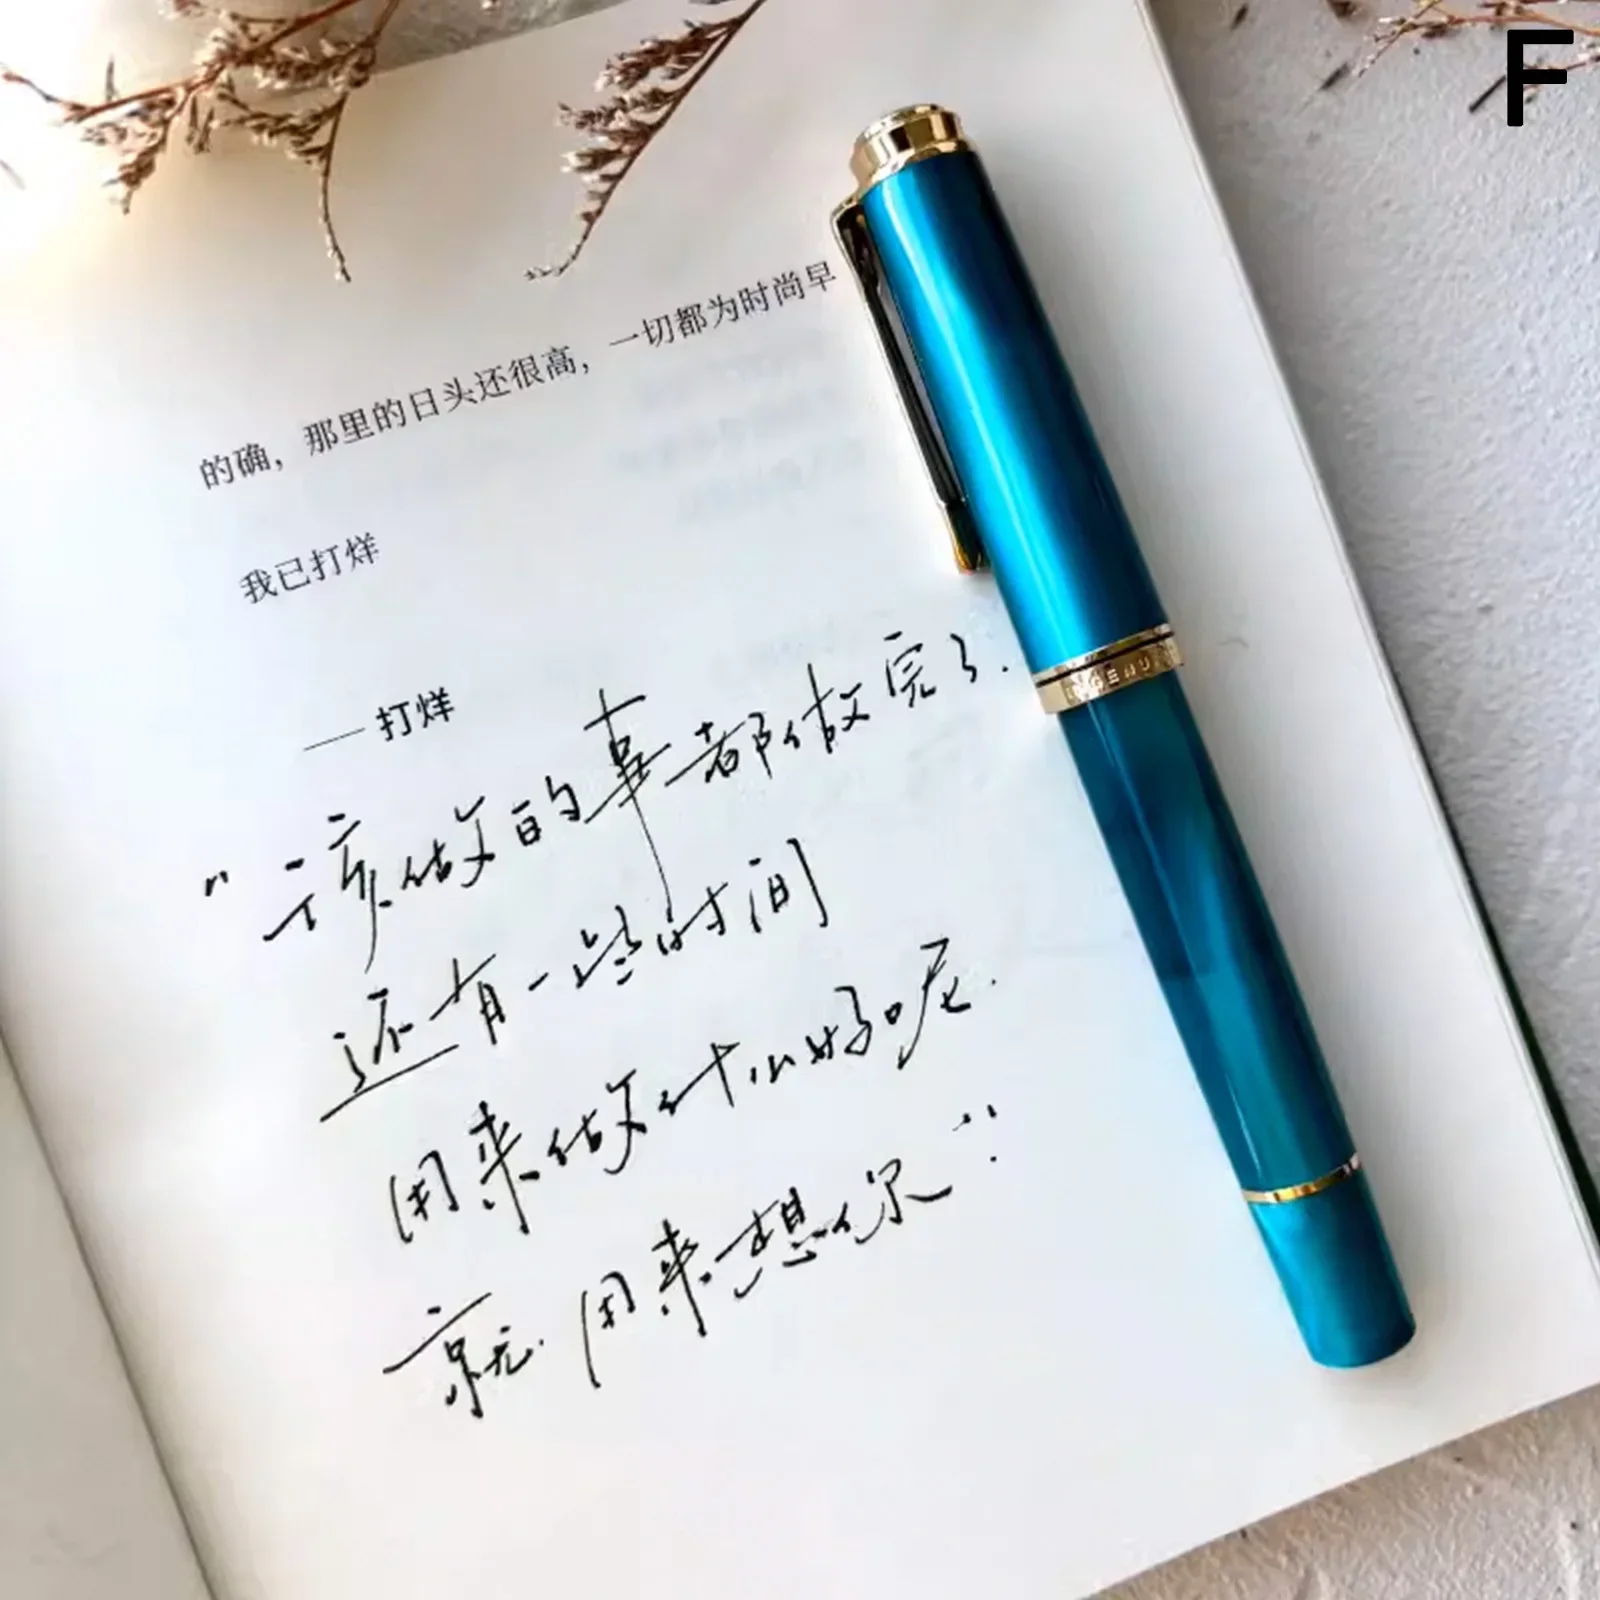 F
的确，那里的日头还很高，一切都为时尚早
我已打烊
——打烊
“该做的事都做完了.
还有一些时间
用来做什么好呢.
就用来想你”